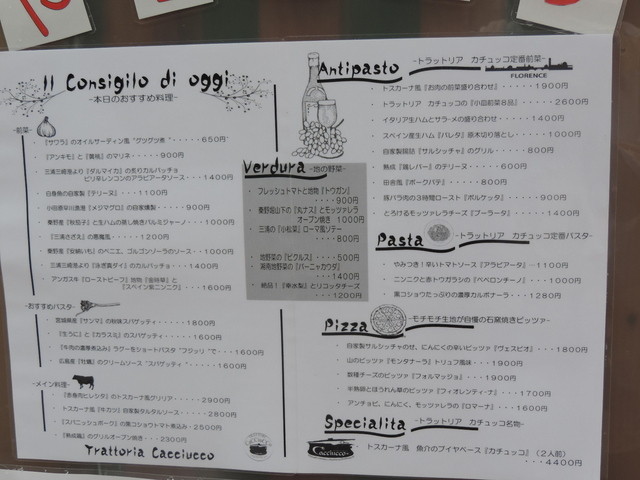 Il Consigilo di oggi
-本日のおすすめ料理-
-前菜-
『サワラ』のオイルサーディン風 "グツグツ煮"・・・・・650円
『アンキモ』と『黄桃』のマリネ・・・・900円
三浦三崎港より『ダルマイカ』の炙りカルパッチョ
ピリ辛レンコンのアラビアータソース・・・・1400円
白身魚の自家製『テリーヌ』・・・1100円
小田原早川漁港『メジマグロ』の自家燻製・・・・・900円
秦野産『秋茄子』と生ハムの蒸し焼きパルミジャーノ・・・・1000円
『三浦さざえ』の悪魔風・・・・1200円
秦野産『安納いも』のベニエ、ゴルゴンゾーラのソース・・・・1000円
三浦三崎港より『〆さば真ダイ』のカルパッチョ・・・・1400円
アンガス牛『ローストビーフ』
『スペイン栗ニンニク』・・・・1600円
-おすすめパスタ-
宮城県産『サンマ』の和味スパゲッティ・・・・1800円
『生うに』と『カラスミ』のスパゲッティ・・・・1600円
『牛肉の濃厚煮込み』ラグーをショートパスタ "フジッリ"で・・・・1600円
広島産『牡蠣』のクリームソース "スパゲッティ"・・・・1600円
-メイン料理-
トスカーナ風グリリア・・・・2900円
トスカーナ風『牛カツ』自家製タルタルソース・・・・2800円
『スパニッシュポーク』の黒コショウトマト煮込み・・・2500円
のグリルオーブン焼き・・・2300円
Trattoria Cacciucco
Verdura -地の野菜-
・フレッシュトマトと地物『トウガン』
・・・・900円
・秦野堀山下の『丸ナス』とモッツァレラ
オーブン焼き 1000円
・三浦の『小松菜』ローマ風ソテー
・・・・800円
・地野菜の『ピクルス』・・・・500円
・湘南地野菜の『バーニャカウダ』
・・・・1400円
・絶品！『奉水梨』とリコッタチーズ
・・・・1200円
Antipasto -トラットリア カチュッコ定番前菜-
FLORENCE
・トスカーナ風『お肉の前菜盛り合わせ』・・・・1900円
・トラットリア カチュッコの『小皿前菜8品』・・・・2600円
・イタリア生ハムとサラーメの盛り合わせ・・・・1400円
・スペイン産生ハム『パレタ』原木切り落とし・・・・1000円
・自家製腸詰『サルシッチャ』のグリル・・・・800円
・熟成『鶏レバー』のテリーヌ・・・・600円
・田舎風『ポークパテ』・・・・800円
・豚バラ肉の3時間ロースト『ポルケッタ』・・・・900円
・とろけるモッツァレラチーズ『ブーラータ』・・・・1400円
Pasta -トラットリア カチュッコ定番パスタ-
・やみつき！辛いトマトソース『アラビアータ』・・・1100円
・ニンニクと赤トウガラシの『ペペロンチーノ』・・・・1000円
・黒コショウたっぷりの濃厚カルボナーラ・・・・1280円
Pizza -モチモチ生地が自慢の石窯焼きピッツァ-
・自家製サルシッチャのせ、にんにくの辛いピッツァ『ヴェスビオ』・・・1800円
・山のピッツァ『モンタナーラ』トリュフ風味・・・・1900円
・数種チーズのピッツァ『フォルマッジョ』・・・・1900円
・半熟卵とほうれん草のピッツァ『フィオレンティーナ』・・・・1700円
・アンチョビ、にんにく、モッツァレラの『ロマーナ』・・・・1600円
Specialita -トラットリア カチュッコ名物-
Cacciucco
・トスカーナ風 魚介のブイヤベース『カチュッコ』（2人前）
・・・4400円